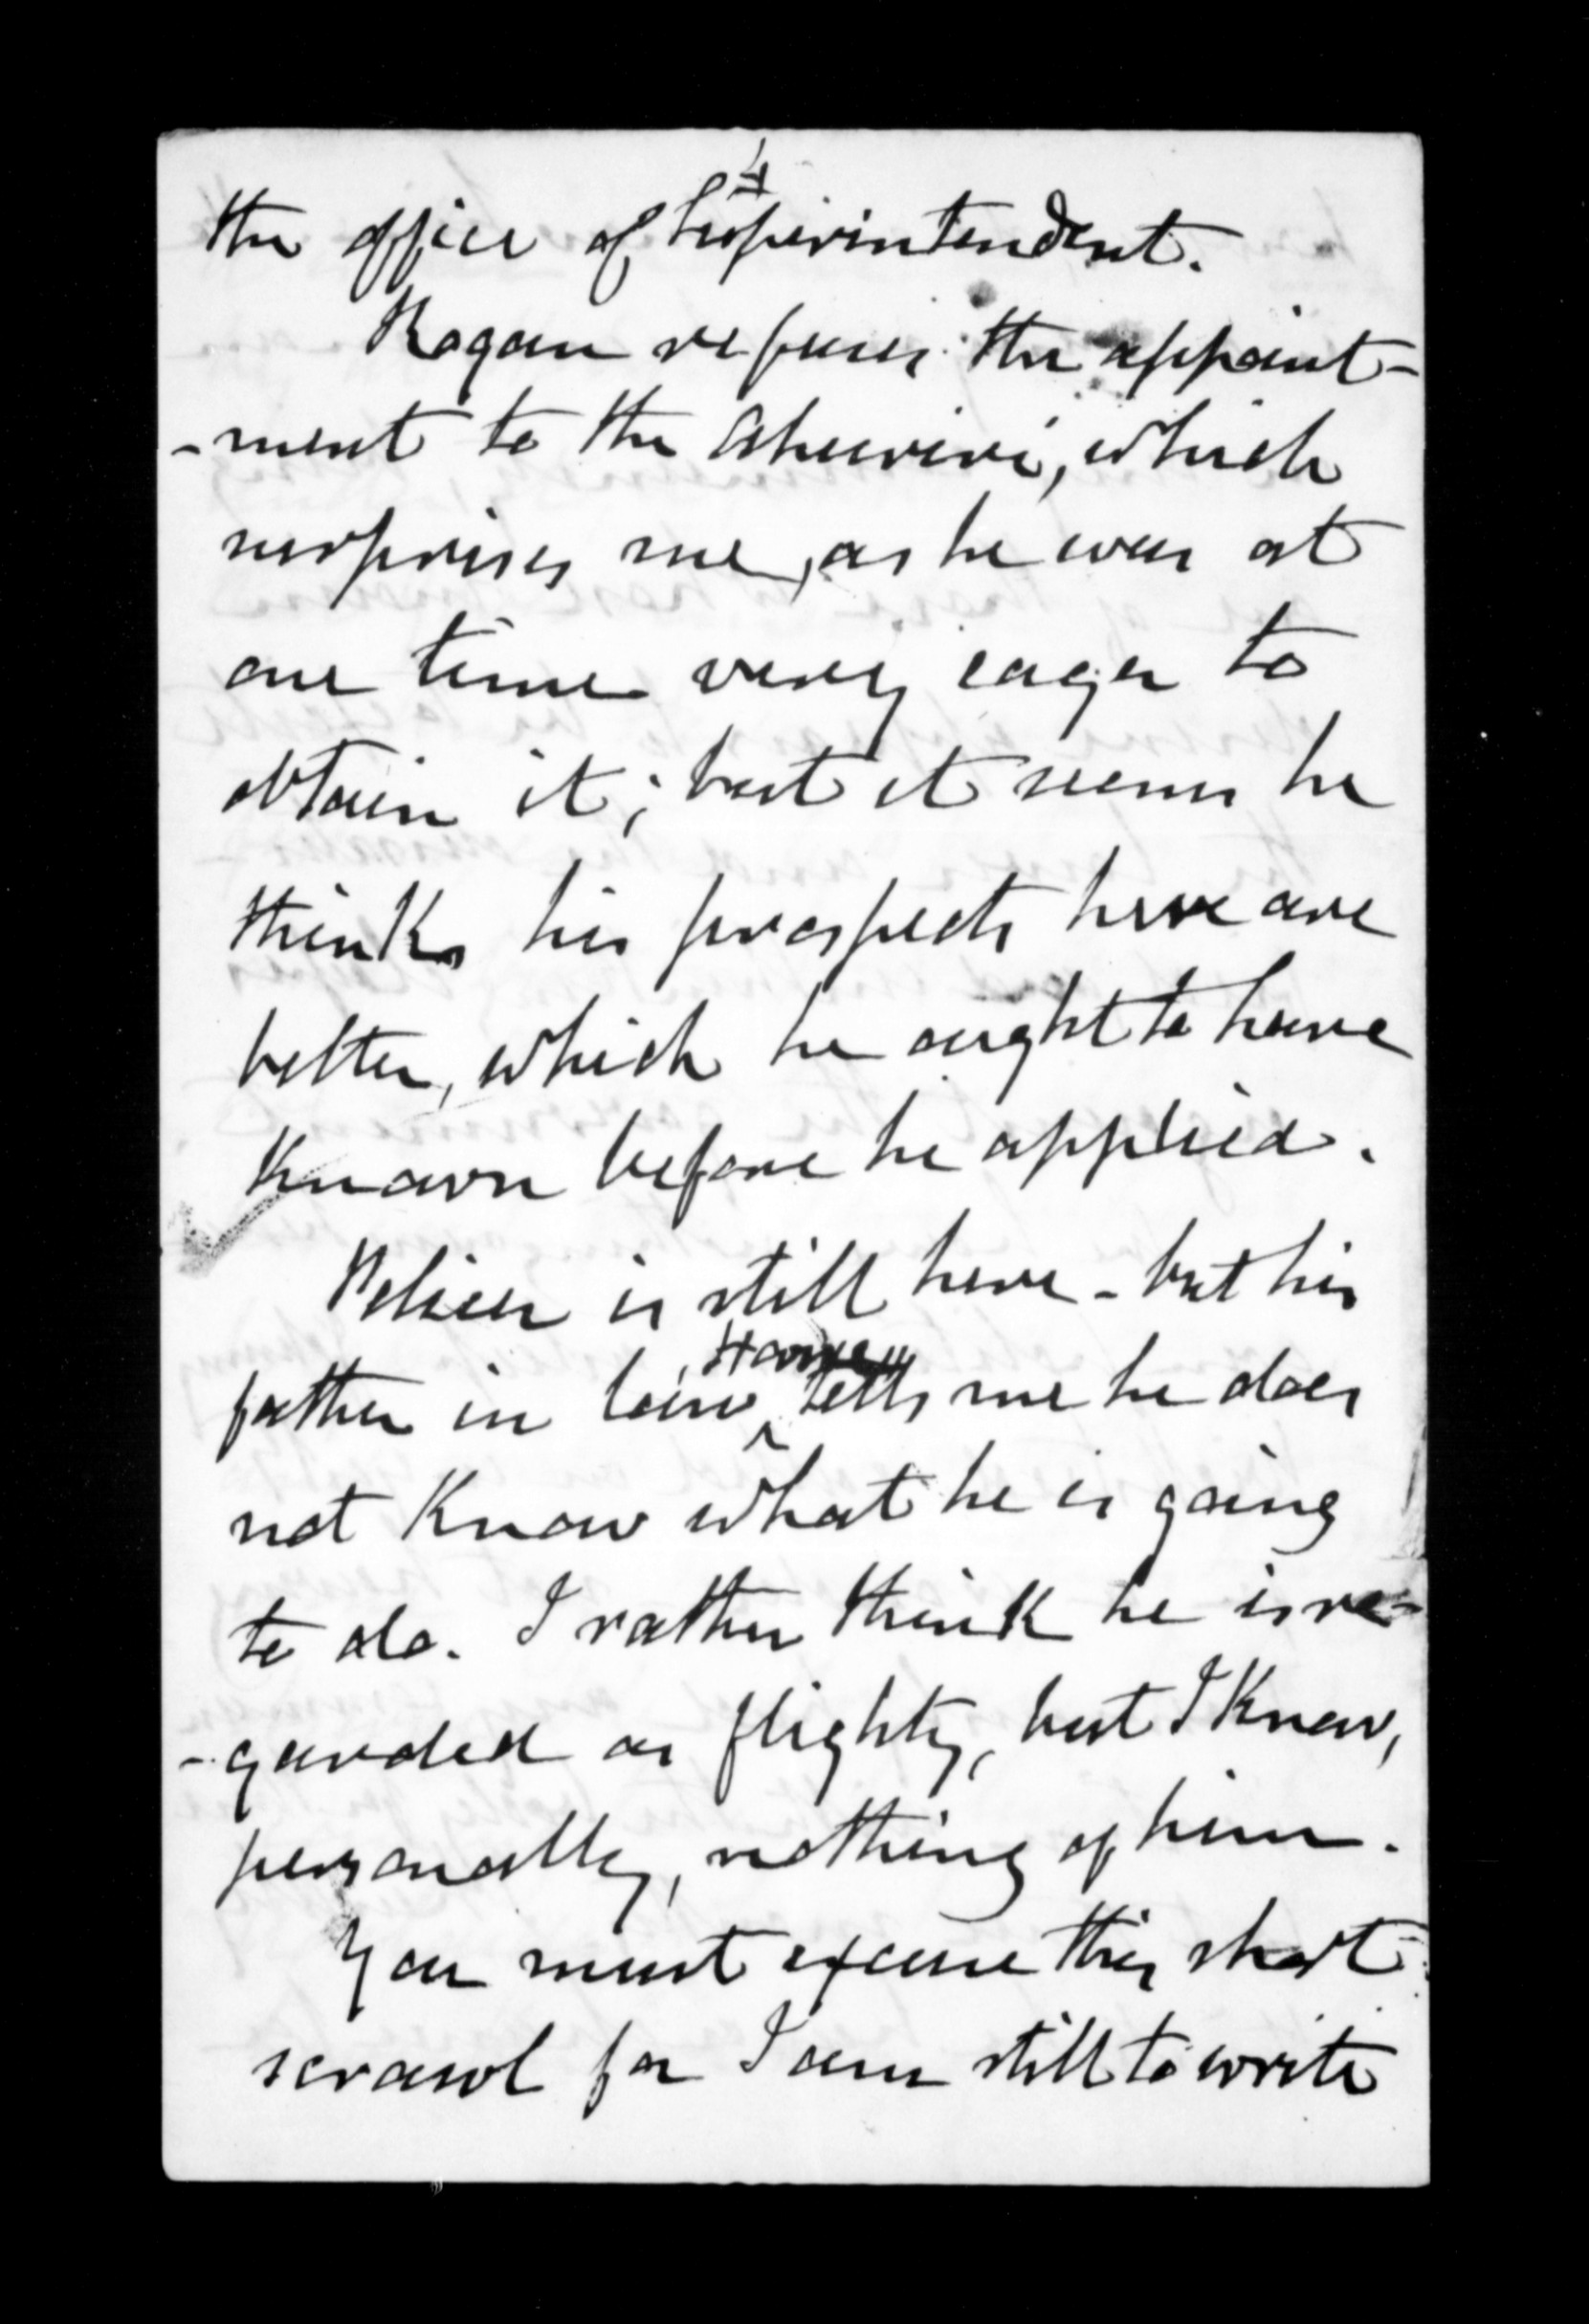 4
the office of Superintendent.
Rogan refuses the appoint-
-ment to the Ahuriri, which
surprises me, as he was at
one time very eager to
obtain it; but it seems he
thinks his prospects here are
better, which he ought to have
known before he applied.
is still here - but his
father in law, tells me he does
not know what he is going
to do. I rather think he is re-
-garded as flighty, but I know,
personally, nothing of him.
You must excuse this short
scrawl for I am still to write